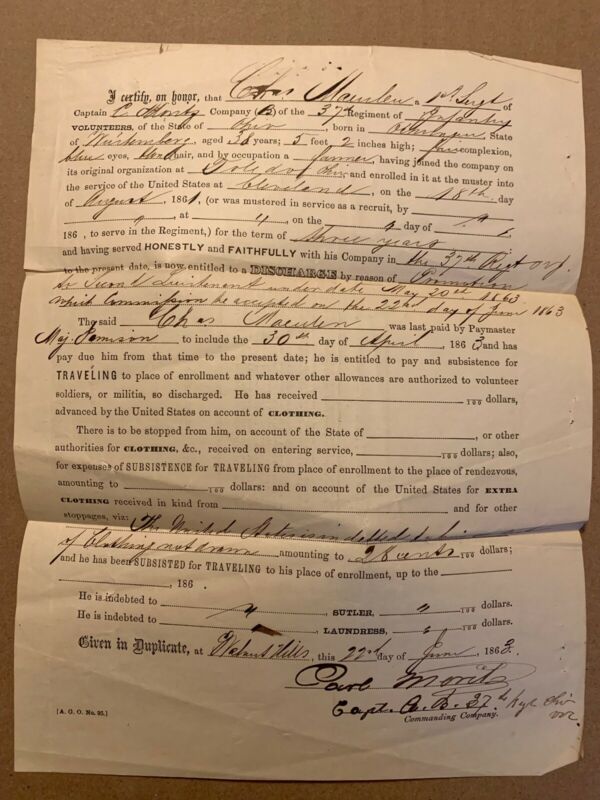 I certify, on honor, that Chas Maeulen a 1st Sergt of
Captain C. Moritz Company (B) of the 37th Regiment of Infantry
VOLUNTEERS, of the State of Ohio, born in State
of Würtemberg, aged years; 5 feet 2 inches high; complexion,
blue eyes, hair, and by occupation a farmer, having joined the company on
its original organization at Toledo Ohio and enrolled in it at the muster into
the service of the United States at Cleveland, on the 18th day
of August, 1861, (or was mustered in service as a recruit, by "
" , at " , on the " day of " ,
186 , to serve in the Regiment,) for the term of three years ;
and having served HONESTLY and FAITHFULLY with his Company in the 37th Regt
to the present date, is now entitled to a DISCHARGE by reason of Promotion
to Lieutenant under date May 20th 1863
which Commission he accepted on the 22nd day of June 1863
The said Chas Maeulen was last paid by Paymaster
Maj. Jamison to include the 30th day of April, 1863, and has
pay due him from that time to the present date; he is entitled to pay and subsistence for
TRAVELING to place of enrollment and whatever other allowances are authorized to volunteer
soldiers, or militia, so discharged. He has received 100 dollars,
advanced by the United States on account of CLOTHING.
There is to be stopped from him, on account of the State of , or other
authorities for CLOTHING, &c., received on entering service, 100 dollars; also,
for expenses of SUBSISTENCE for TRAVELING from place of enrollment to the place of rendezvous,
amounting to 100 dollars: and on account of the United States for EXTRA
CLOTHING received in kind from and for other
stoppages, viz: The United States is indebted to him
of Clothing not drawn amounting to 28 cents 100 dollars;
and he has been SUBSISTED for TRAVELING to his place of enrollment, up to the
, 186 .
He is indebted to " SUTLER, " 100 dollars.
He is indebted to , LAUNDRESS, " 100 dollars.
Given in Duplicate, at Walnut Hills, this 22nd day of June, 1863.
Carl Moritz
Capt. Co. B. 37th Regt Ohio
Commanding Company.
[A. G. O. No. 95.]